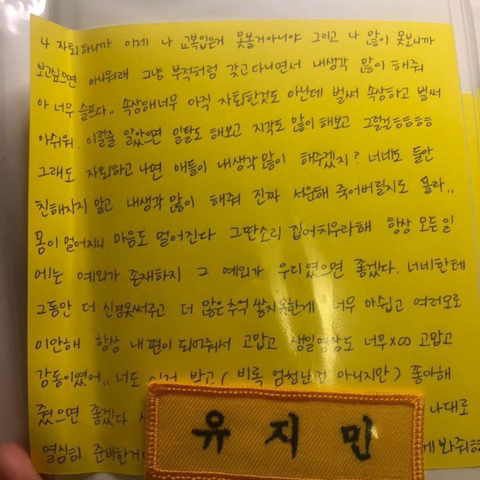 나 자퇴하니까 이제 나 교복입은거 못볼거아니야 그리고 나 많이 못보니까
보고싶으면 아니뭐래 그냥 부적처럼 갖고다니면서 내생각 많이 해줘
아 너무 슬프다.. 속상해너무 아직 자퇴한것도 아닌데 벌써 속상하고 벌써
아쉬워. 이럴줄 알았으면 일탈도 해보고 지각도 많이 해보고 그럴걸ㅎㅎㅎㅎ
그래도 자퇴하고 나면 애들이 내생각 많이 해주겠지? 너네도 둘만
친해지지 말고 내생각 많이 해줘 진짜 서운해 죽어버릴지도 몰라..
몸이 멀어지니 마음도 멀어진다 그딴소리 집어치우라해 항상 모든일
에는 예외가 존재하지 그 예외가 우리였으면 좋겠다.
그동안 더 신경못써주고 더 많은추억 쌓지못한게 너무 아쉽고 여러모로
미안해 항상 내편이 되어줘서 고맙고 생일영상도 너무 고맙고
감동이였어.. 너도 이거 받고 (비록 엄청난건 아니지만) 좋아해
줬으면 좋겠다 나대로
열심히 준비한거 봐줘
유지민